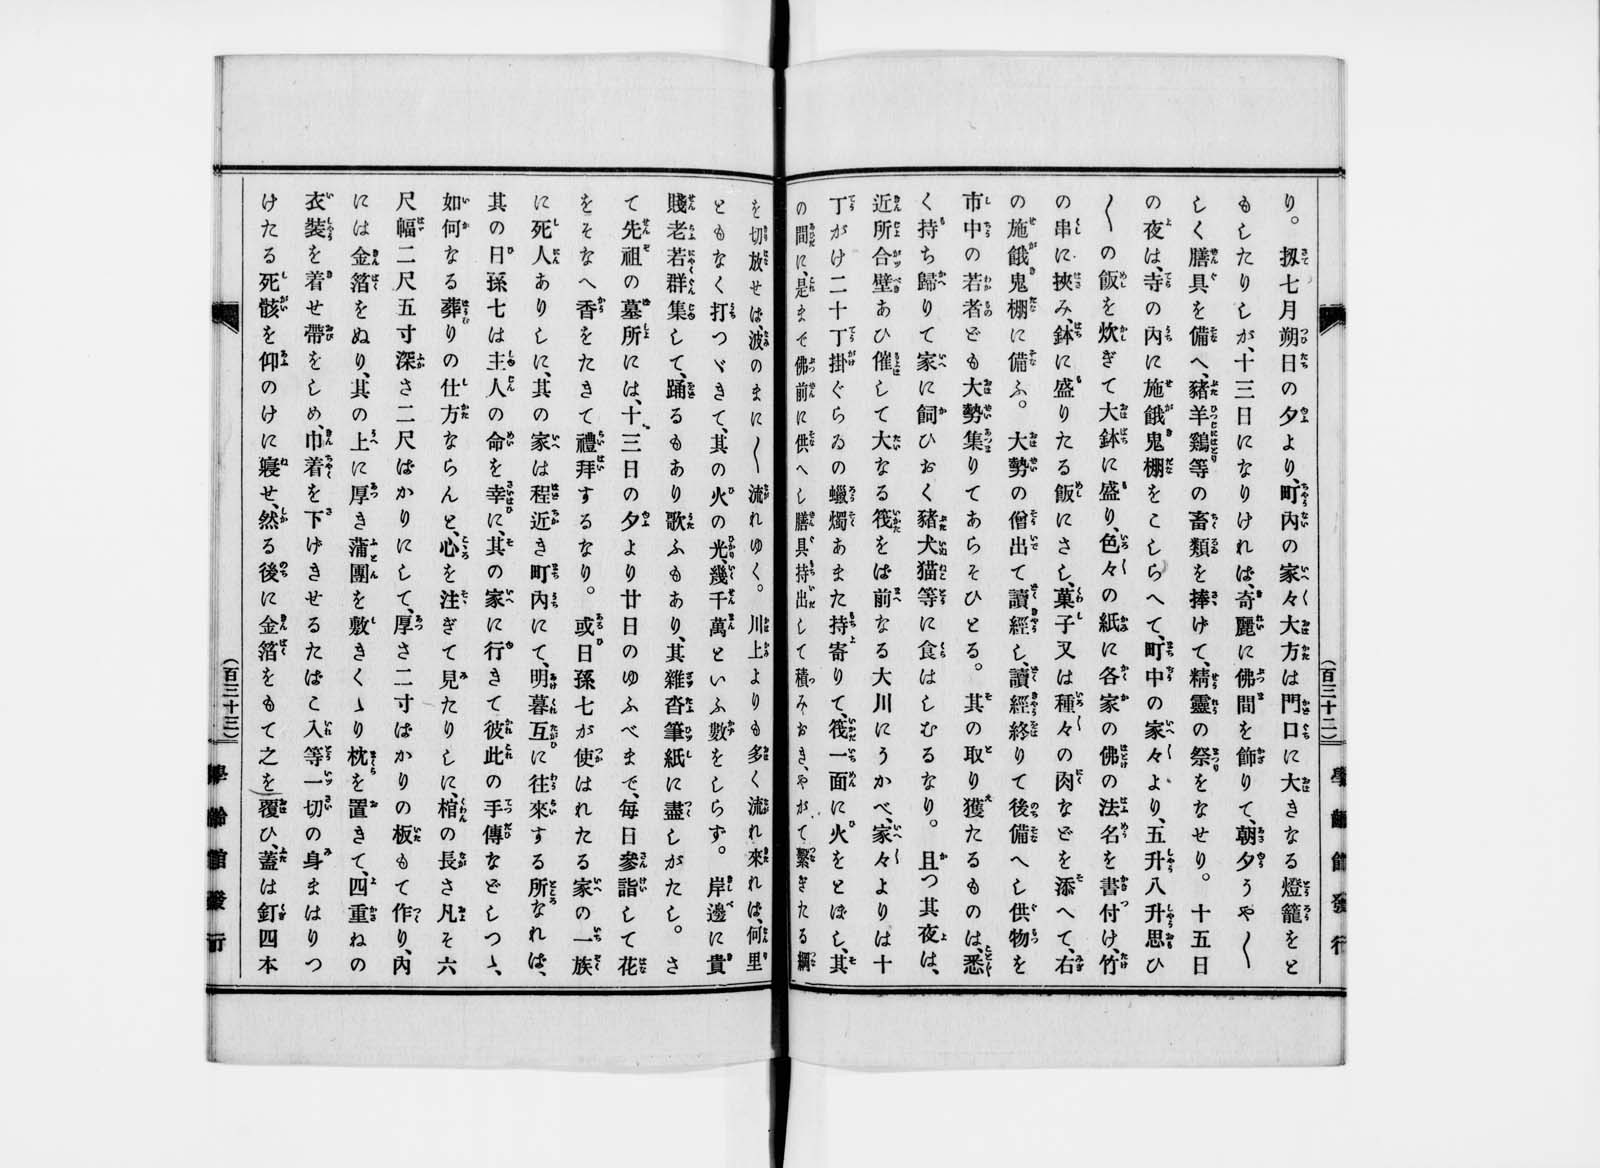 (百三十二)
學齡館發行
り。扨七月朔日の夕より、町內の家々大方は門口に大きなる燈籠をと
もしたりしが、十三日になりければ、奇麗に佛間を飾りて、朝夕うや〳〵
しく膳具を備へ、豬羊鷄等の畜類を捧げて、精靈の祭をなせり。十五日
の夜は、寺の內に施餓鬼棚をこしらへて、町中の家々より、五升八升思ひ
〳〵の飯を炊ぎて大鉢に盛り、色々の紙に各家の佛の法名を書付け、竹
の串に挾み、鉢に盛りたる飯にさし、菓子又は種々の肉などを添へて、右
の施餓鬼棚に備ふ。大勢の僧出て讀經し、讀經終りて後備へし供物を
市中の若者ども大勢集りてあらそひとる。其の取り獲たるものは、悉
く持ち歸りて家に飼ひおく豬犬猫等に食はしむるなり。且つ其夜は、
近所合壁あひ催して大なる筏をば前なる大川にうかべ、家々よりは十
丁がけ二十丁掛ぐらゐの蠟燭あまた持寄りて、筏一面に火をとぼし、其
の間に、是まで佛前に供へし膳具持出して積みおき、やがて繫ぎたる綱
を切放せば、波のまに〳〵流れゆく。川上よりも多く流れ來れば、何里
ともなく打つゞきて、其の火の光、幾千萬といふ數をしらず。岸邊に貴
賤老若群集して、踊るもあり歌ふもあり、其雜沓筆紙に盡しがたし。さ
て先祖の墓所には、十三日の夕より廿日のゆふべまで、每日參詣して花
をそなへ香をたきて禮拜するなり。或日孫七が使はれたる家の一族
に死人ありしに、其の家は程近き町內にて、明暮互に往來する所なれば、
其の日孫七は主人の命を幸に、其の家に行きて彼此の手傳などしつゝ、
如何なる葬りの仕方ならんと、心を注ぎて見たりしに、棺の長さ凡そ六
尺幅二尺五寸深さ二尺ばかりにして、厚さ二寸ばかりの板もて作り、內
には金箔をぬり、其の上に厚き蒲團を敷きくゝり枕を置きて、四重ねの
衣裝を着せ帶をしめ、巾着を下げきせるたばこ入等一切の身まはりつ
けたる死骸を仰のけに寢せ、然る後に金箔をもて之を覆ひ、蓋は釘四本
(百三十三)
學齡館發行